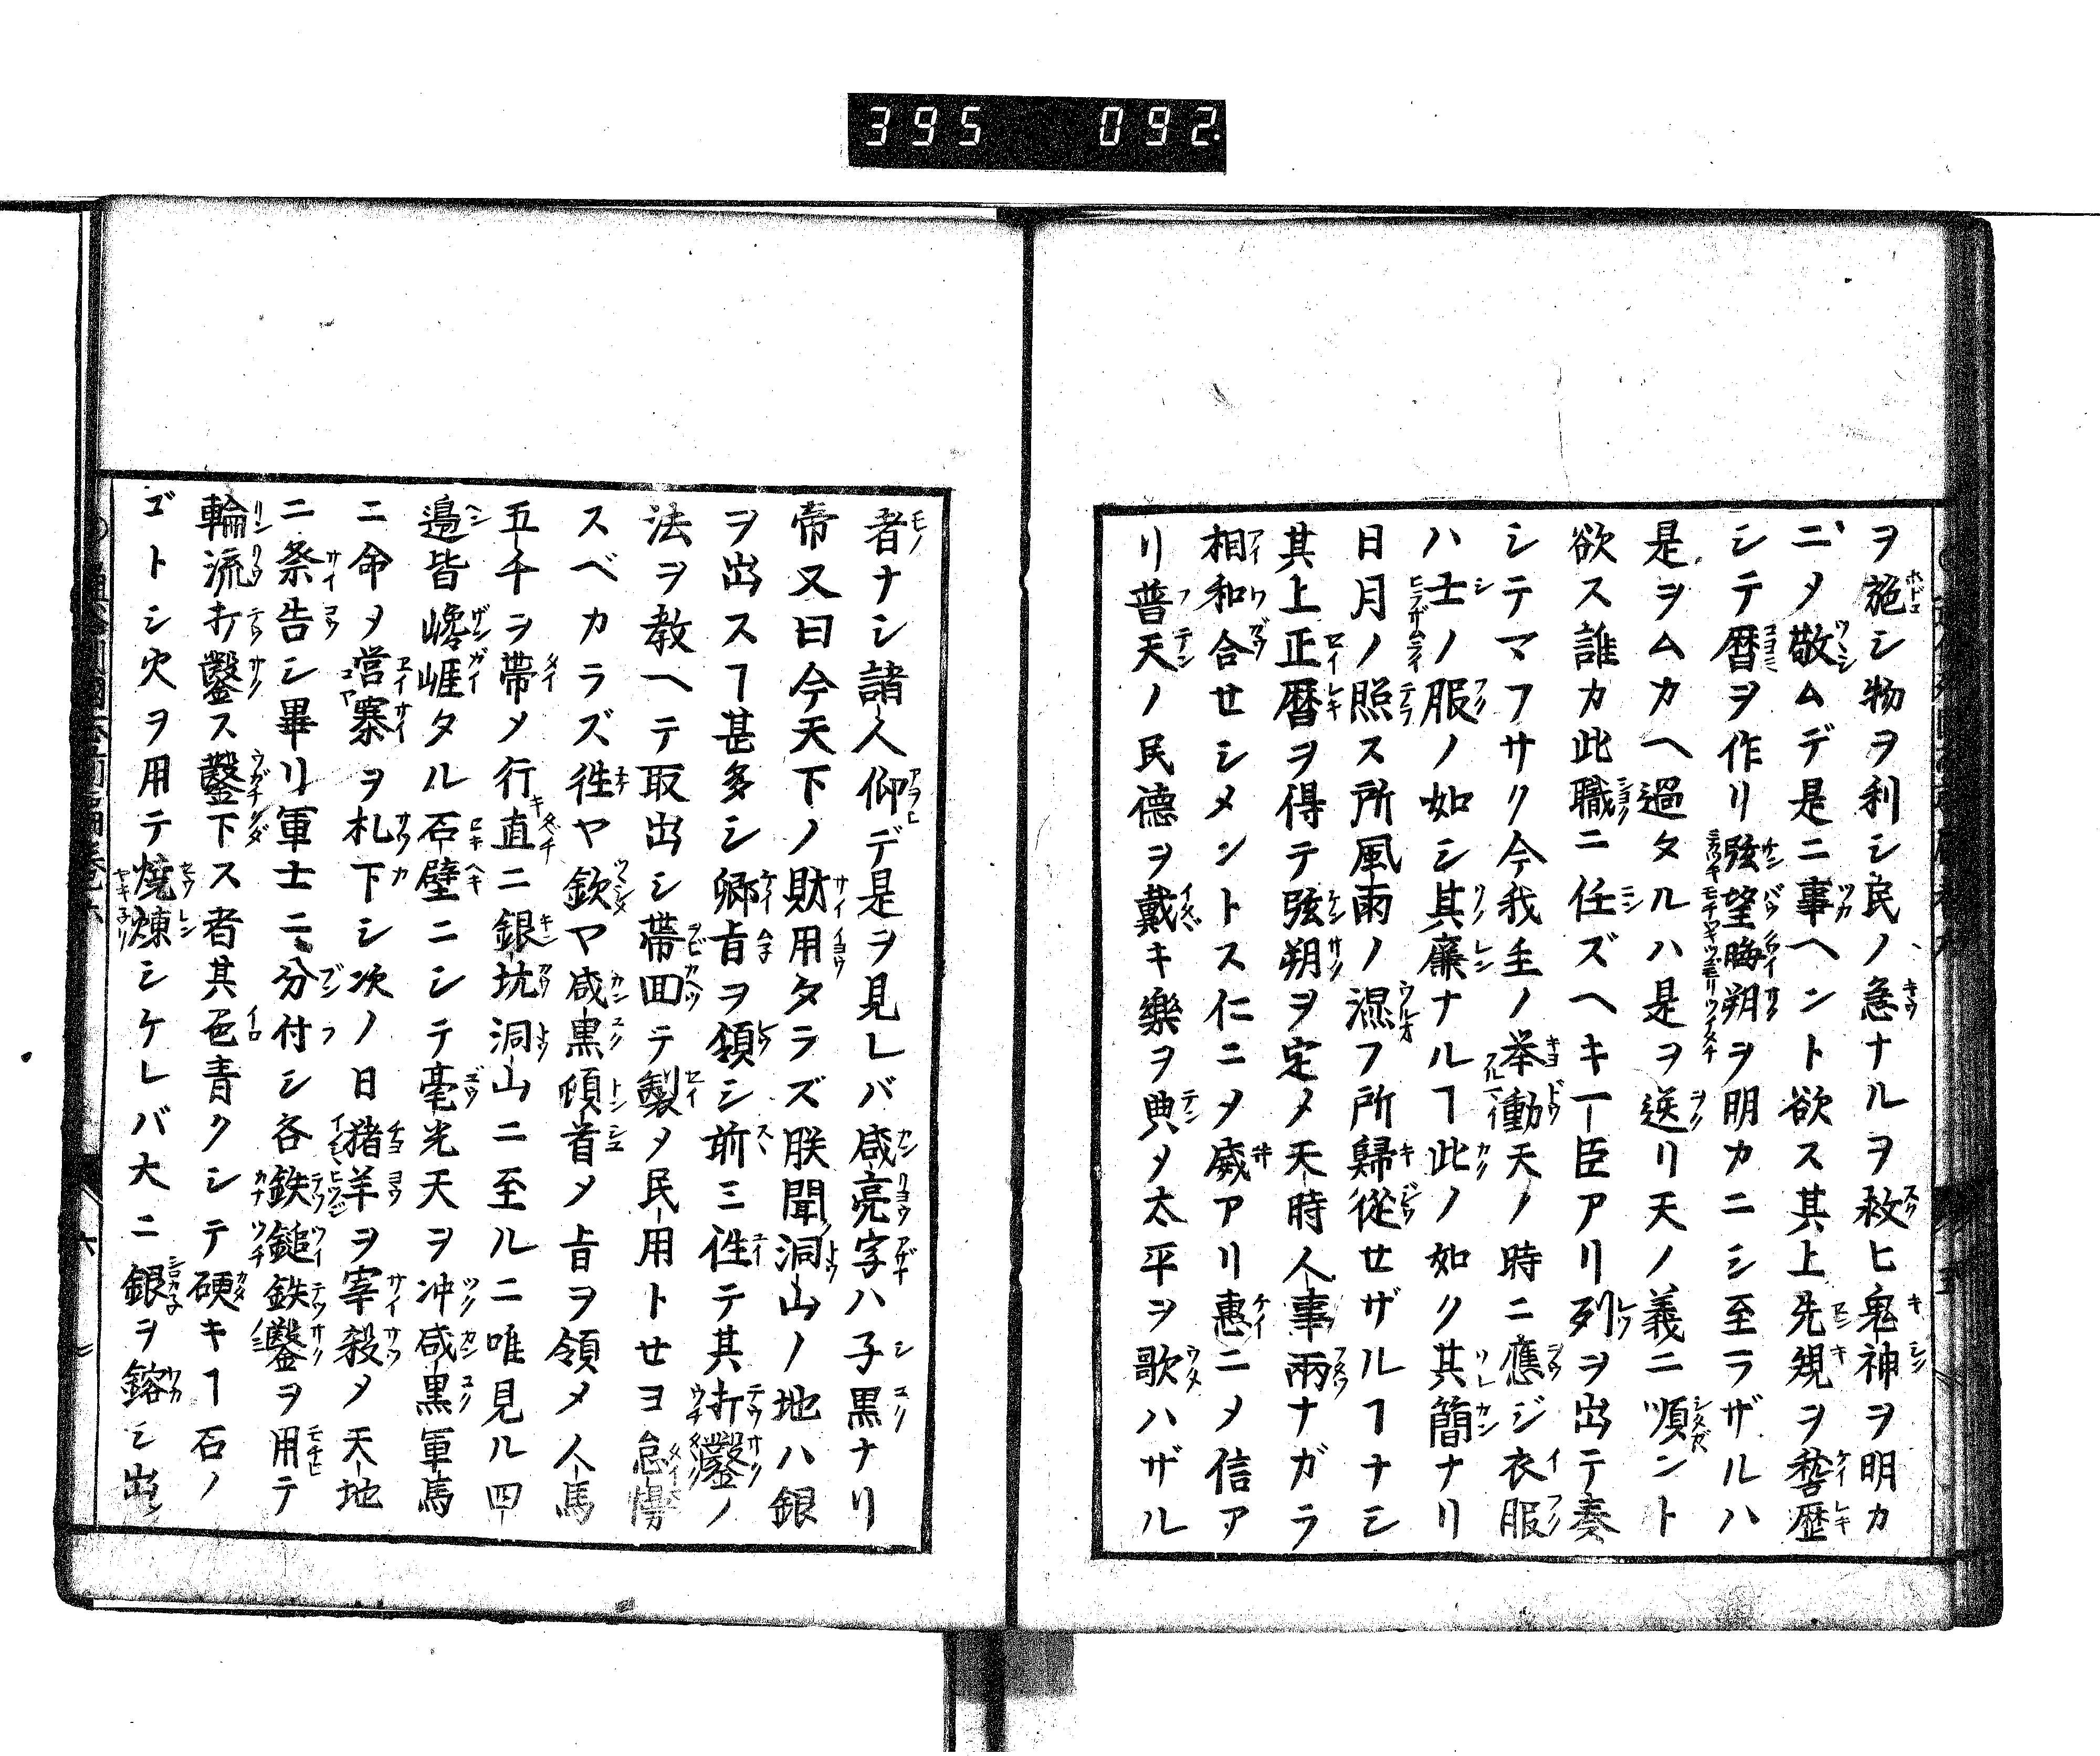 395 092
ヲ施シ物ヲ利シ民ノ急ナルヲ救ヒ鬼神ヲ明カ
ニメ敬ムデ是ニ事ヘント欲ス其上先規ヲ嵆歴
シテ暦ヲ作リ弦望晦朔ヲ明カニシ至ラザルハ
是ヲムカヘ過タルハ是ヲ送リ天ノ義ニ順ント
欲ス誰カ此職ニ任ズヘキ一臣アリ列ヲ出テ奏
シテマフサク今我主ノ挙動天ノ時ニ應ジ衣服
ハ士ノ服ノ如シ其廉ナルヿ此ノ如ク其簡ナリ
日月ノ照ス所風雨ノ濕フ所歸從セザルヿナシ
其上正暦ヲ得テ弦朔ヲ定メ天時人事兩ナガラ
相和合せシメントス仁ニメ威アリ惠ニメ信ア
リ普天ノ民德ヲ戴キ樂ヲ典メ太平ヲ歌ハザル
者ナシ諸人仰デ是ヲ見レバ咸亮字ハ子黒ナリ
帝又曰今天下ノ財用タラズ朕聞洞山ノ地ハ銀
ヲ出スヿ甚多シ卿旨ヲ領シ前ミ徃テ其打鑿ノ
法ヲ教ヘテ取出シ帶回テ製メ民用トせヨ怠慢
スベカラズ徃ヤ欽ヤ咸黒頓首メ旨ヲ領メ人馬
五千ヲ帶メ行直ニ銀坑洞山ニ至ルニ唯見ル四
邉皆巉崕タル石壁ニシテ毫光天ヲ冲咸黒軍馬
ニ命メ営寨ヲ札下シ次ノ日猪羊ヲ宰殺メ天地
ニ祭告シ畢リ軍士ニ分付シ各鉄鎚鉄鑿ヲ用テ
輪流打鑿ス鑿下ス者其色青クシテ硬キヿ石ノ
ゴトシ火ヲ用テ燒煉シケレバ大ニ銀ヲ鎔シ出シ
六